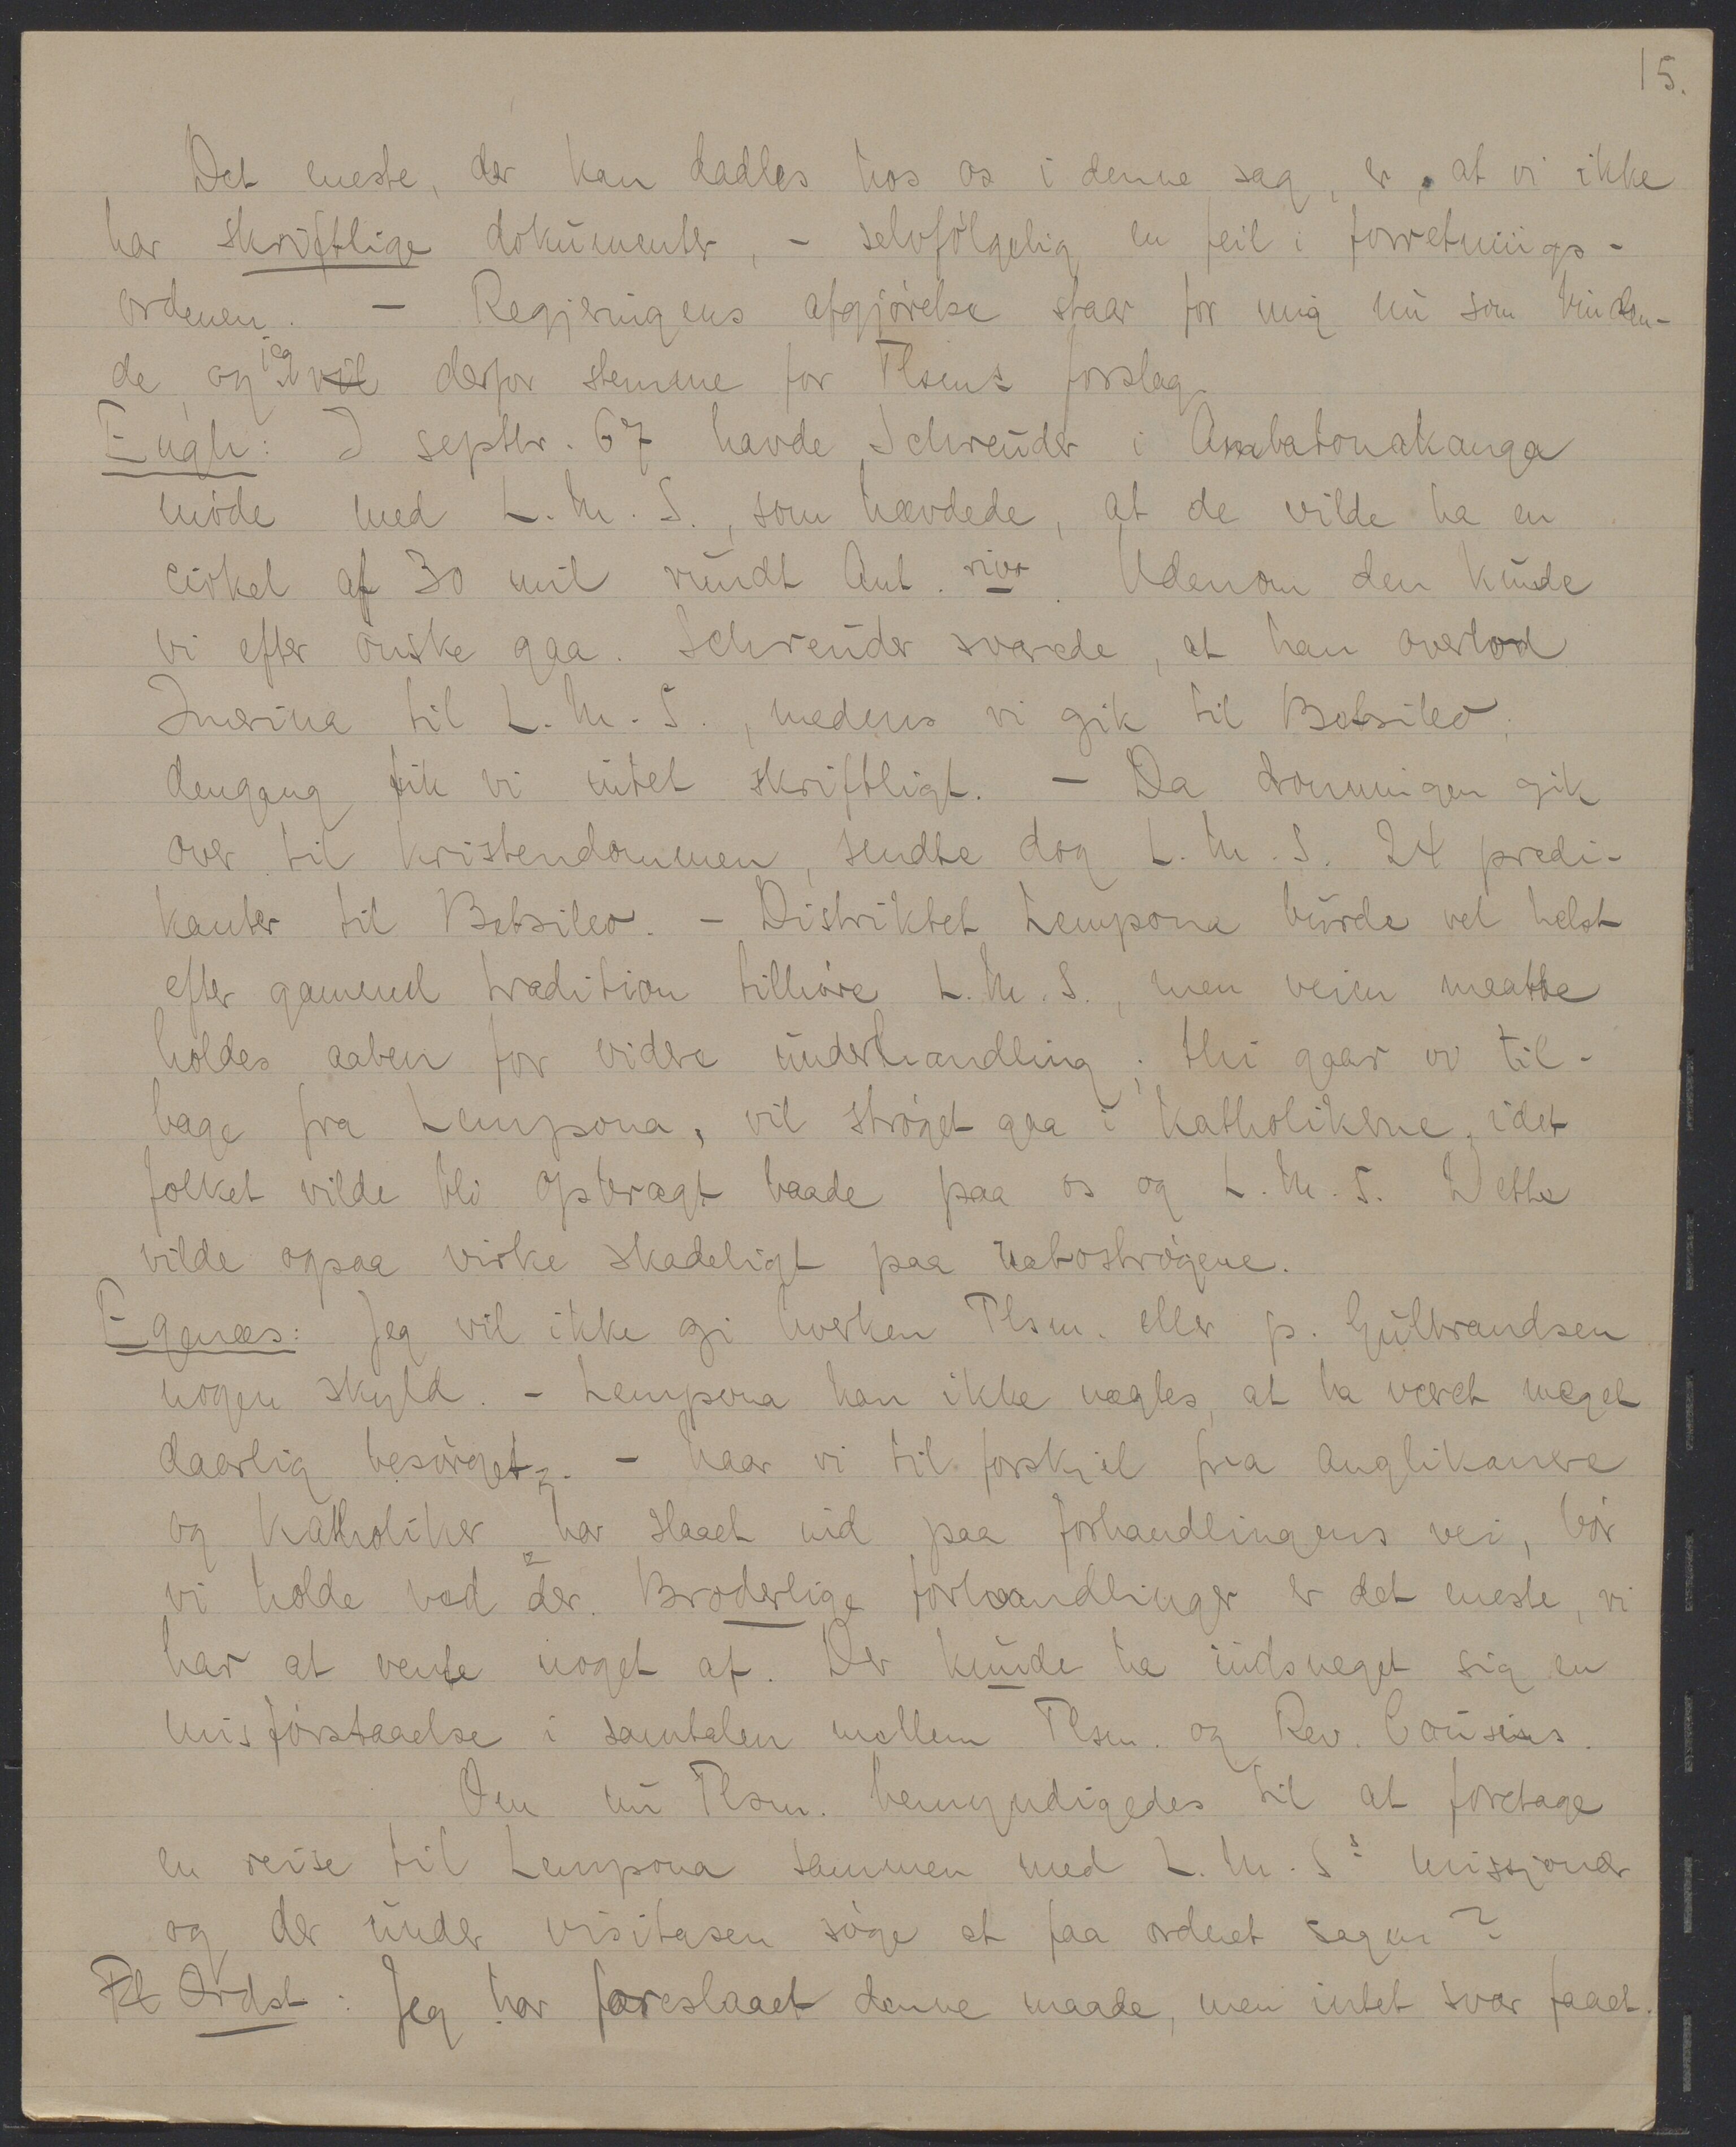 15.
Det eneste, der kan dadles hos os i denne sag, er, at vi ikke
har skriftlige dokumenter, - selvfølgelig en feil i forretnings-
ordenen. - Regjeringens afgjørelse staar for mig nu som binden-
de, og jeg vil derfor stemme for Tlsms forslag.
Engh: I septbr. 67 havde Schreuder i Ambatonakanga
møde med L.M.S., som hævdede, at de vilde ha en
cirkel af 30 mil rundt Ant. rivo. Udenom den kunde
vi efter ønske gaa. Schreuder svarede, at han overlod
Imerina til L.M.S., medens vi gik til Betsileo;
dengang fik vi intet skriftligt. - Da dronningen gik
over til kristendommen, sendte dog L.M.S. 24 predi-
kanter til Betsileo. - Distriktet Lempona burde vel helst
efter gammel tradition tilhøre L.M.S., men veien maatte
holdes aaben for videre underhandling; thi gaar vi til-
bage fra Lempona, vil strøget gaa i katholikerne, idet
folket vilde bli opbragt baade paa os og L.M.S. Dette
vilde ogsaa virke skadeligt paa nabostrøgene.
Egenæs: Jeg vil ikke gi hverken Tlsm. eller p. Gulbrandsen
nogen skyld. - Lempona kan ikke nægtes, at ha været meget
daarlig besørget. - Naar vi til forskjel fra anglikanere
og katholiker har slaaet ind paa forhandlingens vei, bør
vi holde ved der. Broderlige forhandlinger er det eneste, vi
har at vente noget af. Der kunde ha indsneget sig en
misforstaaelse i samtalen mellem Tlsm. og Rev. Cousins.
Om nu Tlsm. bemyndigedes til at foretage
en reise til Lempona sammen med L.M.S's missjonær
og der under visitasen søge at faa ordnet sagen?
Ordst: Jeg har foreslaaet denne maade, men intet svar faaet.